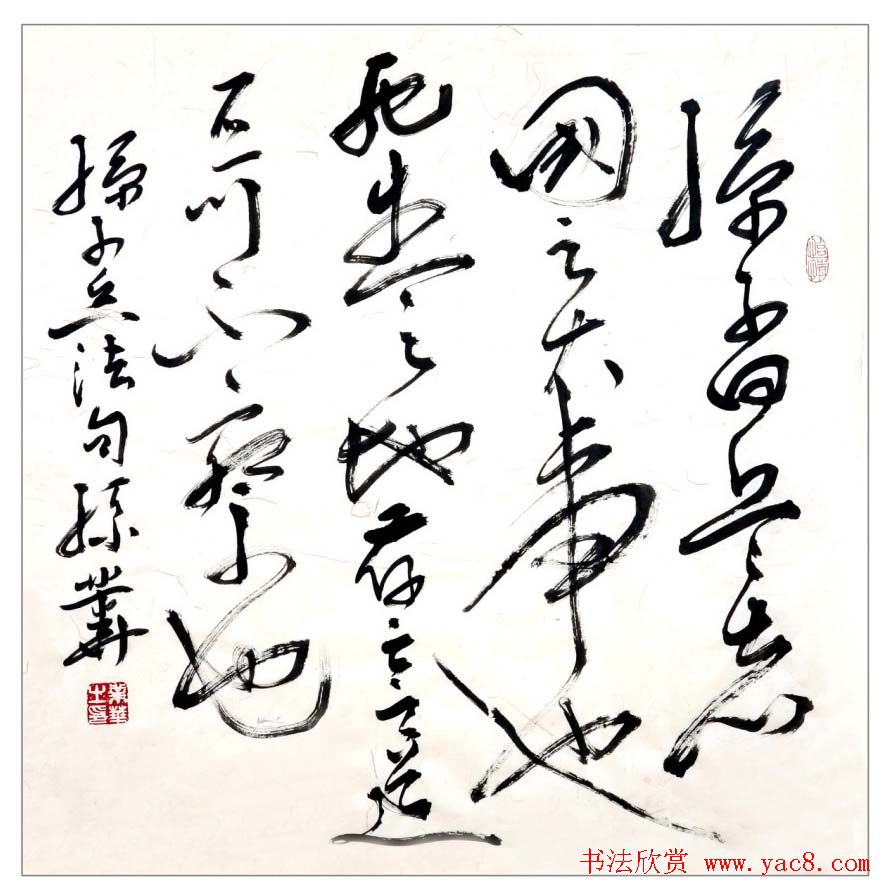 孫子曰兵者
國之大事也
死生之地存亡之道
不可不察也
孫子兵法句孫華
书法欣赏 www.yac8.com